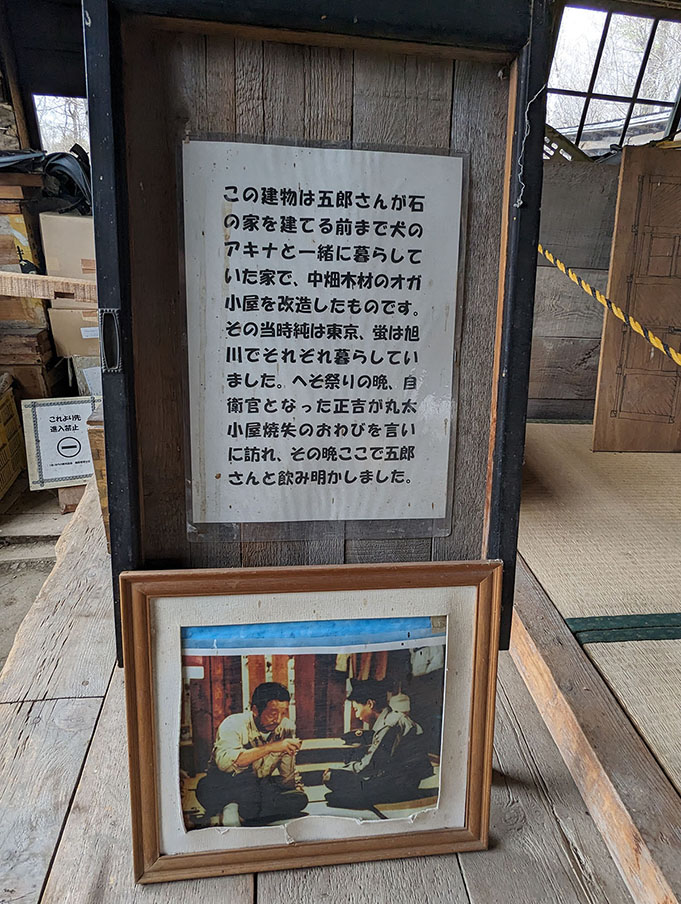 この建物は五郎さんが石
の家を建てる前まで犬の
アキナと一緒に暮らして
いた家で、中畑木材のオガ
小屋を改造したものです。
その当時純は東京、蛍は旭
川でそれぞれ暮らしてい
ました。へそ祭りの晩、自
衛官となった正吉が丸太
小屋焼失のおわびを言い
に訪れ、その晩ここで五郎
さんと飲み明かしました。
これより先
進入禁止